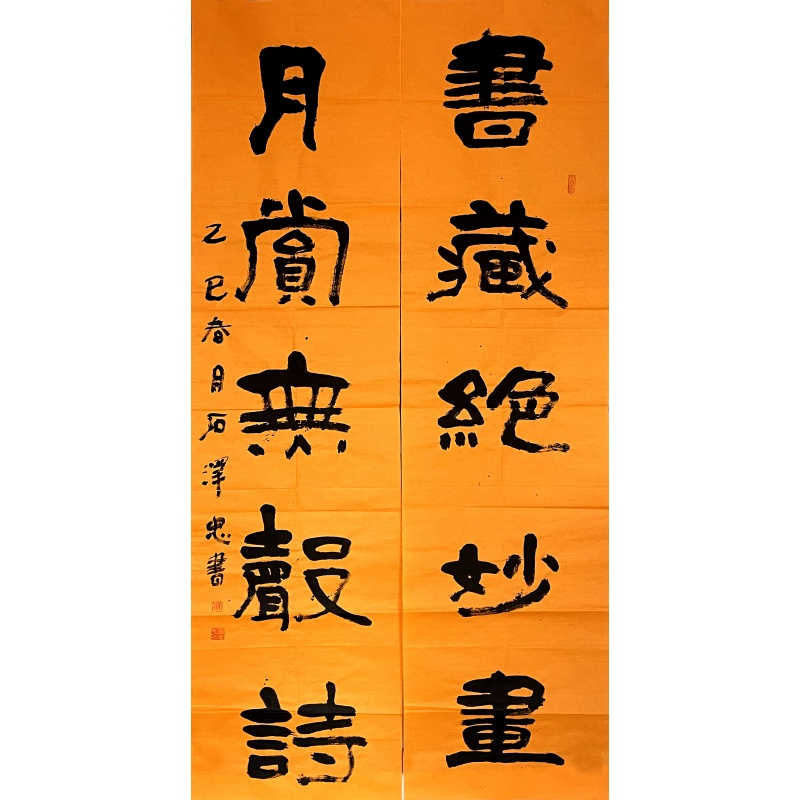 書藏絕妙畫
月賞無聲詩
乙巳春月石澤忠書